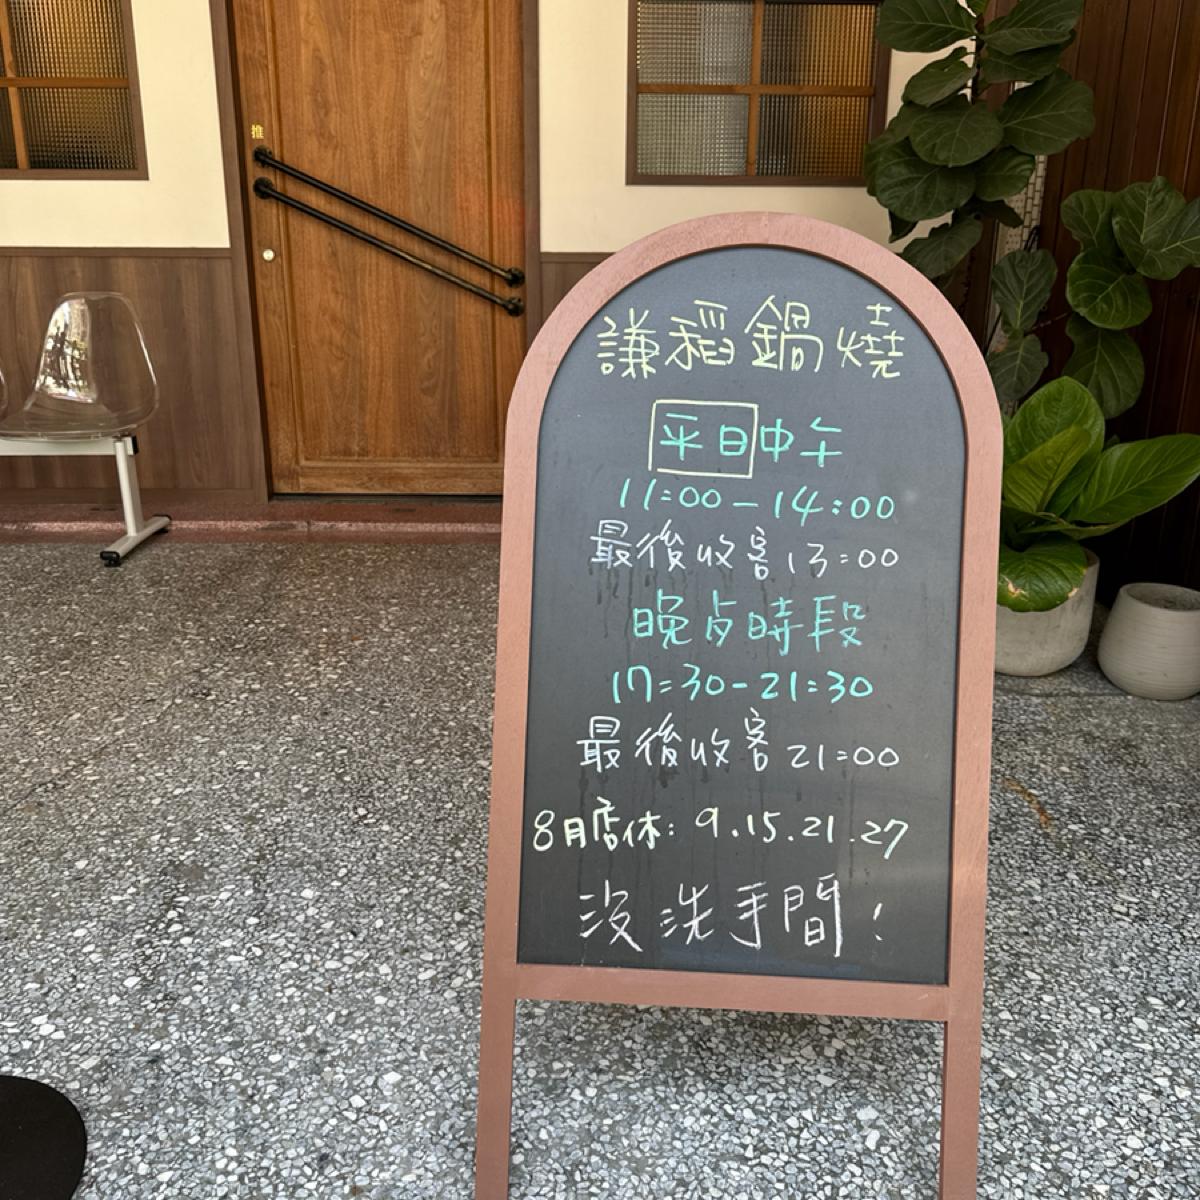 推
謙稻鍋燒
平日中午
11:00-14:00
最後收客13:00
晚占時段
17:30-21:30
最後收客21:00
8月店休: 9.15.21.27
沒洗手間!